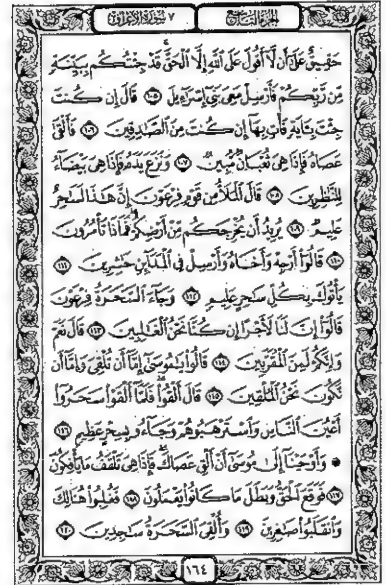 ٧ سورة الأعراف الجزء التاسع
حَقِيقٌ عَلَىٰٓ أَن لَّآ أَقُولَ عَلَى ٱللَّهِ إِلَّا ٱلْحَقَّ قَدْ جِئْتُكُم بِبَيِّنَةٍ
مِّن رَّبِّكُمْ فَأَرْسِلْ مَعِىَ بَنِىٓ إِسْرَٰٓءِيلَ ١٠٥ قَالَ إِن كُنتَ
جِئْتَ بِـَٔايَةٍ فَأْتِ بِهَآ إِن كُنتَ مِنَ ٱلصَّٰدِقِينَ ١٠٦ فَأَلْقَىٰ
عَصَاهُ فَإِذَا هِىَ ثُعْبَانٌ مُّبِينٌ ١٠٧ وَنَزَعَ يَدَهُۥ فَإِذَا هِىَ بَيْضَآءُ
لِلنَّٰظِرِينَ ١٠٨ قَالَ ٱلْمَلَأُ مِن قَوْمِ فِرْعَوْنَ إِنَّ هَٰذَا لَسَٰحِرٌ
عَلِيمٌ ١٠٩ يُرِيدُ أَن يُخْرِجَكُم مِّنْ أَرْضِكُمْ فَمَاذَا تَأْمُرُونَ
١١٠ قَالُوٓا۟ أَرْجِهْ وَأَخَاهُ وَأَرْسِلْ فِى ٱلْمَدَآئِنِ حَٰشِرِينَ ١١١
يَأْتُوكَ بِكُلِّ سَٰحِرٍ عَلِيمٍ ١١٢ وَجَآءَ ٱلسَّحَرَةُ فِرْعَوْنَ
قَالُوٓا۟ إِنَّ لَنَا لَأَجْرًا إِن كُنَّا نَحْنُ ٱلْغَٰلِبِينَ ١١٣ قَالَ نَعَمْ
وَإِنَّكُمْ لَمِنَ ٱلْمُقَرَّبِينَ ١١٤ قَالُوا۟ يَٰمُوسَىٰٓ إِمَّآ أَن تُلْقِىَ وَإِمَّآ أَن
نَّكُونَ نَحْنُ ٱلْمُلْقِينَ ١١٥ قَالَ أَلْقُوا۟ فَلَمَّآ أَلْقَوْا۟ سَحَرُوٓا۟
أَعْيُنَ ٱلنَّاسِ وَٱسْتَرْهَبُوهُمْ وَجَآءُو بِسِحْرٍ عَظِيمٍ ١١٦
۞ وَأَوْحَيْنَآ إِلَىٰ مُوسَىٰٓ أَنْ أَلْقِ عَصَاكَ فَإِذَا هِىَ تَلْقَفُ مَا يَأْفِكُونَ
١١٧ فَوَقَعَ ٱلْحَقُّ وَبَطَلَ مَا كَانُوا۟ يَعْمَلُونَ ١١٨ فَغُلِبُوا۟ هُنَالِكَ
وَٱنقَلَبُوا۟ صَٰغِرِينَ ١١٩ وَأُلْقِىَ ٱلسَّحَرَةُ سَٰجِدِينَ ١٢٠
١٦٤